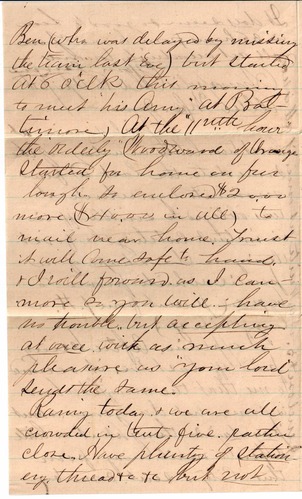 Ben (who was delayed by missing
the train last Eve) but started
at 6 o'clk this morning
to meet his Army at Bal-
timore, At the "11th hour"
the orderly (Woodward of Orange
Started for home on fur
lough so enclosed $2.00
more ( in all) to
mail near home, trust
it will Come safe to hand,
& I will forward as I can
more so you will have
no trouble but accepting
at once with as much
pleasure as your lord
sends the same.
Rainy today & we are all
crowded in tent, five rather
close. Have plenty of station
ery thread &c &c but not